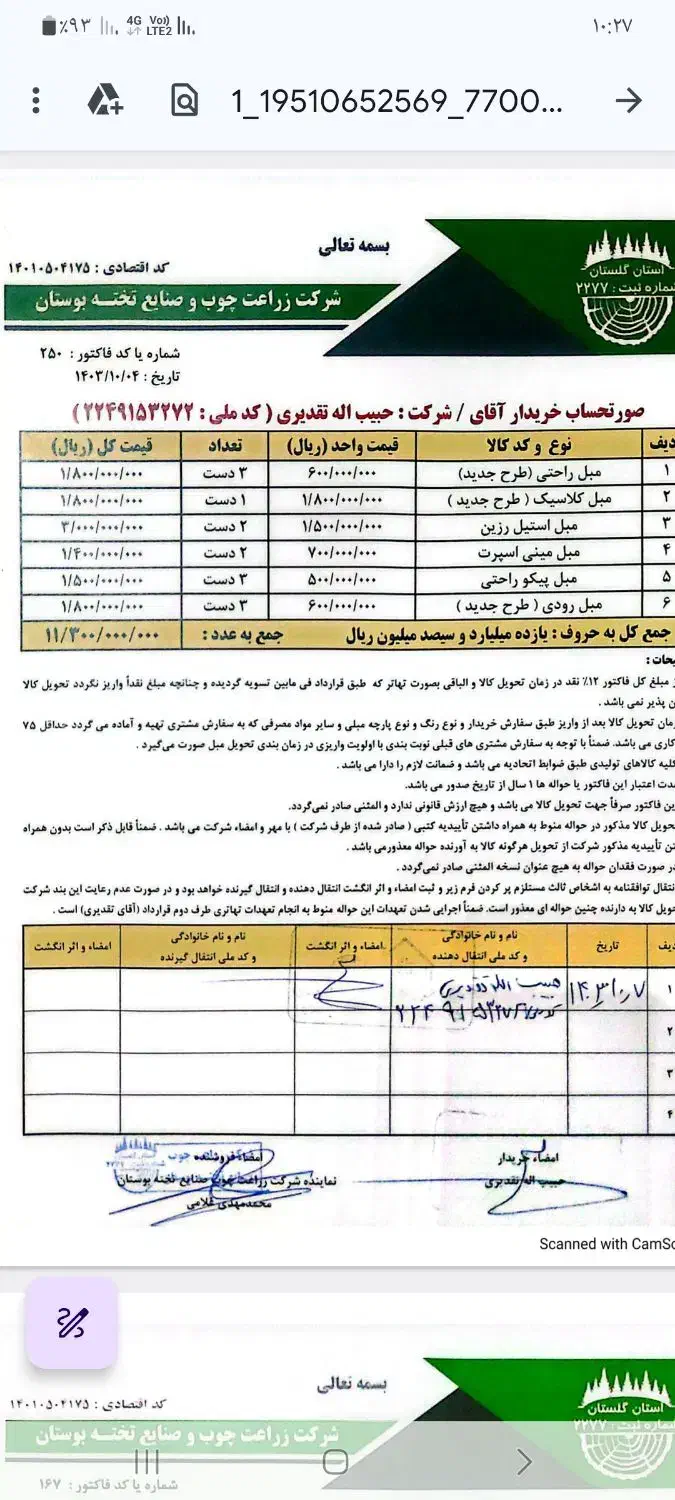 ٪۹۳ 4G Vo) LTE2
۱۰:۲۷
1_19510652569_7700...
بسمه تعالی
کد اقتصادی : ۱۴۰۱۰۵۰۴۱۷۵
استان گلستان
شماره ثبت : ۲۲۷۷
شرکت زراعت چوب و صنایع تختــه بوستان
شماره یا کد فاکتور : ۲۵۰
تاریخ : ۱۴۰۳/۱۰/۰۴
صورتحساب خریدار آقای / شرکت : حبیب اله تقدیری ( کد ملی : ۲۲۴۹۱۵۳۲۷۲ )
دیف نوع و کد کالا قیمت واحد (ریال) تعداد قیمت کل (ریال)
۱ مبل راحتی (طرح جدید) ۶۰۰/۰۰۰/۰۰۰ ۳ دست ۱/۸۰۰/۰۰۰/۰۰۰
۲ مبل کلاسیک ( طرح جدید ) ۱/۸۰۰/۰۰۰/۰۰۰ ۱ دست ۱/۸۰۰/۰۰۰/۰۰۰
۳ مبل استیل رزین ۱/۵۰۰/۰۰۰/۰۰۰ ۲ دست ۳/۰۰۰/۰۰۰/۰۰۰
۴ مبل مینی اسپرت ۷۰۰/۰۰۰/۰۰۰ ۲ دست ۱/۴۰۰/۰۰۰/۰۰۰
۵ مبل پیکو راحتی ۵۰۰/۰۰۰/۰۰۰ ۳ دست ۱/۵۰۰/۰۰۰/۰۰۰
۶ مبل رودی ( طرح جدید ) ۶۰۰/۰۰۰/۰۰۰ ۳ دست ۱/۸۰۰/۰۰۰/۰۰۰
جمع کل به حروف : یازده میلیارد و سیصد میلیون ریال جمع به عدد : ۱۱/۳۰۰/۰۰۰/۰۰۰
یحات :
ز مبلغ کل فاکتور ۱۲٪ نقد در زمان تحویل کالا و الباقی بصورت تهاتر که طبق قرارداد فی مابین تسویه گردیده و چنانچه مبلغ نقداً واریز نگردد تحویل کالا
ن پذیر نمی باشد .
زمان تحویل کالا بعد از واریز طبق سفارش خریدار و نوع رنگ و نوع پارچه مبلی و سایر مواد مصرفی که به سفارش مشتری تهیه و آماده می گردد حداقل ۷۵
کاری می باشد. ضمناً با توجه به سفارش مشتری های قبلی نوبت بندی با اولویت واریزی در زمان بندی تحویل مبل صورت می‌گیرد .
کلیه کالاهای تولیدی طبق ضوابط اتحادیه می باشد و ضمانت لازم را دارا می باشد .
مدت اعتبار این فاکتور یا حواله ها ۱ سال از تاریخ صدور می باشد.
ین فاکتور صرفاً جهت تحویل کالا می باشد و هیچ ارزش قانونی ندارد و المثنی صادر نمی‌گردد.
حویل کالا مذکور در حواله منوط به همراه داشتن تأییدیه کتبی ( صادر شده از طرف شرکت ) با مهر و امضاء شرکت می باشد . ضمناً قابل ذکر است بدون همراه
تن تأییدیه مذکور شرکت از تحویل هرگونه کالا به آورنده حواله معذورمی باشد .
در صورت فقدان حواله به هیچ عنوان نسخه المثنی صادر نمی‌گردد .
نتقال توافقنامه به اشخاص ثالث مستلزم پر کردن فرم زیر و ثبت امضاء و اثر انگشت انتقال دهنده و انتقال گیرنده خواهد بود و در صورت عدم رعایت این بند شرکت
حویل کالا به دارنده چنین حواله ای معذور است. ضمناً اجرایی شدن تعهدات این حواله منوط به انجام تعهدات تهاتری طرف دوم قرارداد (آقای تقدیری) است .
دیف تاریخ نام و نام خانوادگی و کد ملی انتقال دهنده امضاء و اثر انگشت نام و نام خانوادگی و کد ملی انتقال گیرنده امضاء و اثر انگشت
۱ ۱۴۰۳/۱۰/۰۷ حبیب اله تقدیری
کدملی ۲۲۴۹۱۵۳۲۷۲
۲
۳
۴
امضاء خریدار
حبیب اله تقدیری
امضاء فروشنده
نماینده شرکت زراعت چوب صنایع تخته بوستان
محمدمهدی غلامی
Scanned with CamSc
بسمه تعالی
کد اقتصادی : ۱۴۰۱۰۵۰۴۱۷۵
استان گلستان
شماره ثبت : ۲۲۷۷
شرکت زراعت چوب و صنایع تختــه بوستان
شماره یا کد فاکتور : ۱۶۷